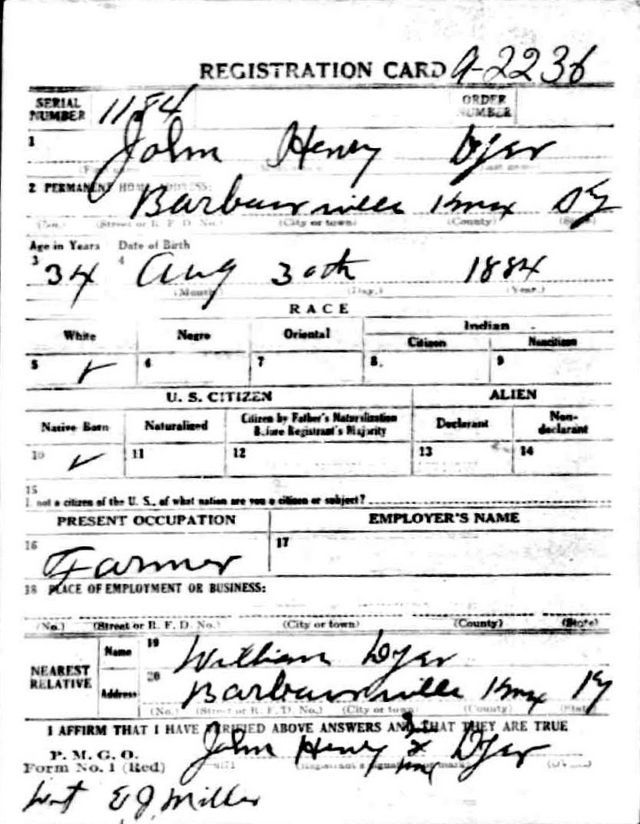 REGISTRATION CARD A-2236
SERIAL NUMBER 1184 ORDER NUMBER
1 John Henry Dyer
2 PERMANENT HOME ADDRESS:
Barbourville Knox Ky
(No.) (Street or R. F. D. No.) (City or town) (County) (State)
Age in Years Date of Birth
3 34 4 Aug 30th 1884
(Month) (Day.) (Year.)
RACE
White Negro Oriental Indian
Citizen Noncitizen
5 ✓ 6 7 8. 9
U. S. CITIZEN ALIEN
Native Born Naturalized Citizen by Father's Naturalization Before Registrant's Majority Declarant Non-declarant
10 ✓ 11 12 13 14
15
not a citizen of the U. S., of what nation are you a citizen or subject?
PRESENT OCCUPATION EMPLOYER'S NAME
16 Farmer 17
18 PLACE OF EMPLOYMENT OR BUSINESS:
(No.) (Street or R. F. D. No.) (City or town) (County) (State)
NEAREST RELATIVE Name 19 William Dyer
Address 20 Barbourville Knox Ky
(No.) (Street or R. F. D. No.) (City or town) (County) (State)
I AFFIRM THAT I HAVE VERIFIED ABOVE ANSWERS AND THAT THEY ARE TRUE
P. M. G. O.
Form No. 1 (Red) John Henry x Dyer
(Registrant's signature or mark)
Wit E J Miller